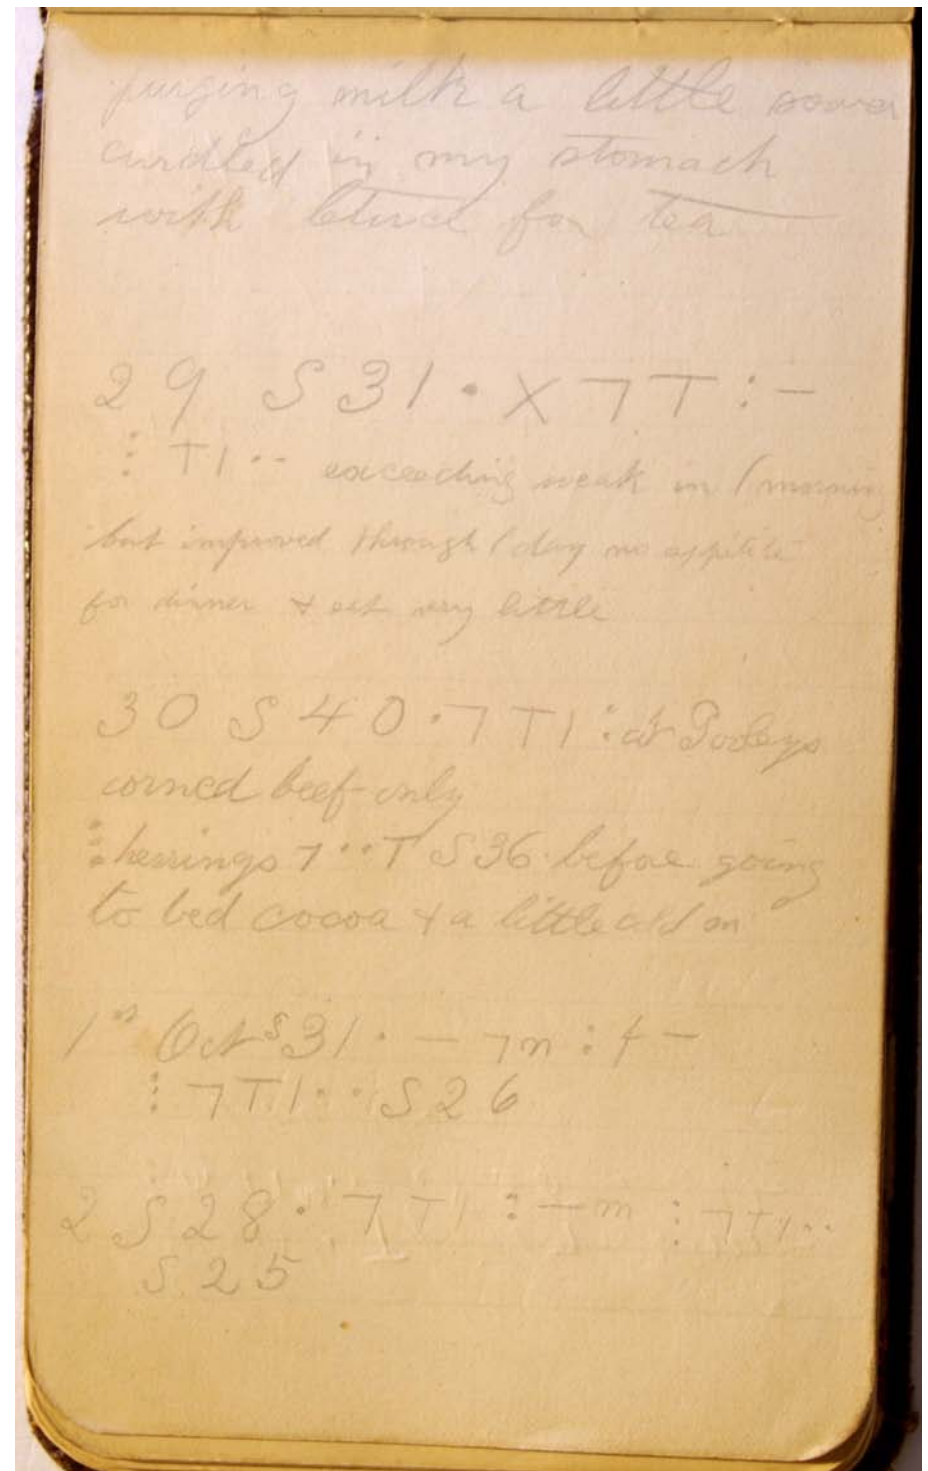 purging milk a little sower
curdled in my stomach
with letuce for tea
29 S 31 · X ㄱ T : -
⋮ T I ·· exceeding weak in / morning
but improved through / day no appetite
for dinner & eat very little
30 S 40 · ㄱ T I : at
corned beef only
⋮ herrings ㄱ ·· T S 36 before going
to bed cocoa & a little
1st Oct S 31 · — ㄱ m : + —
⋮ ㄱ T I ·· S 26
2 S 28 · ㄱ T I : — m : ㄱ T I ··
S 25